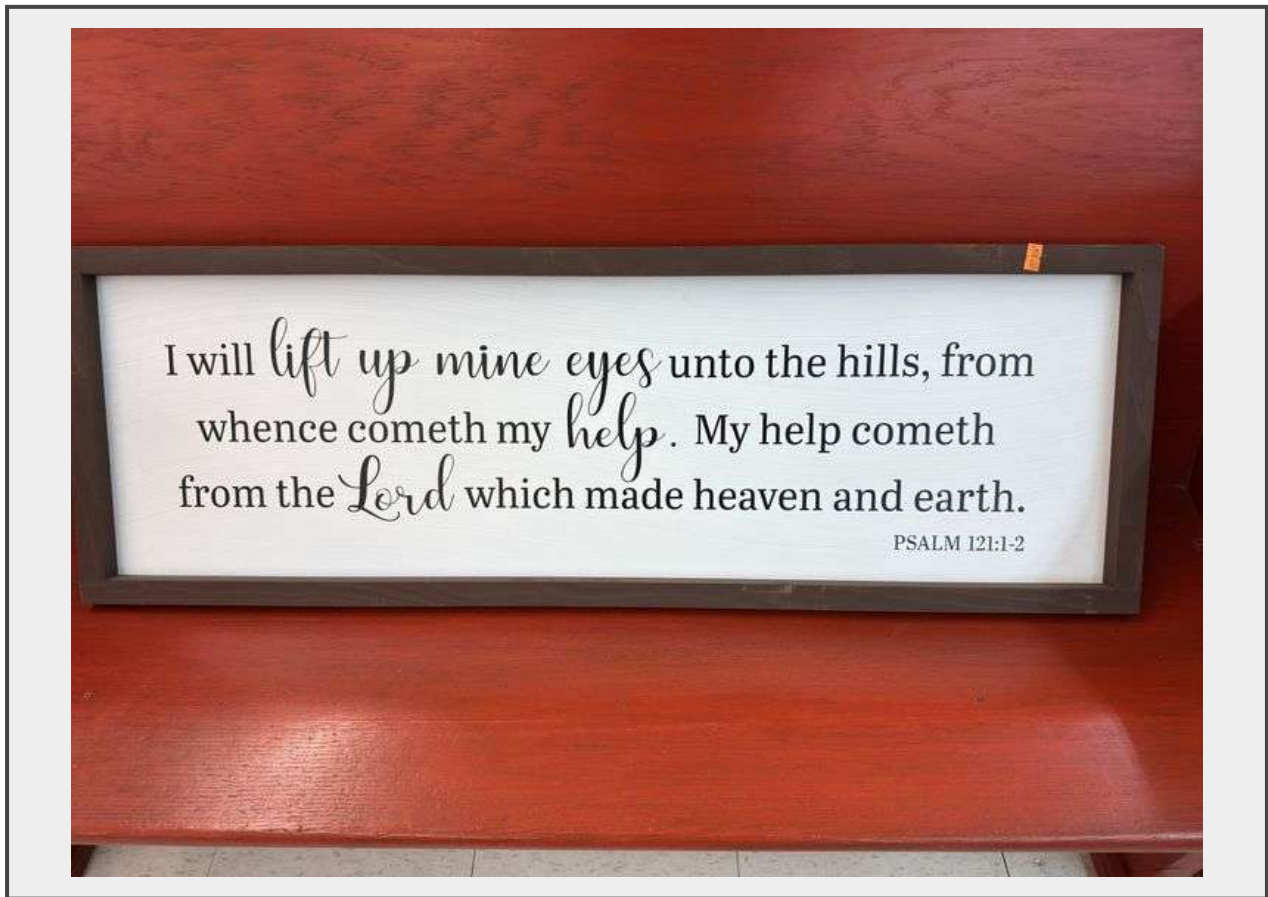 I will lift up mine eyes unto the hills, from
whence cometh my help. My help cometh
from the Lord which made heaven and earth.
PSALM 121:1-2